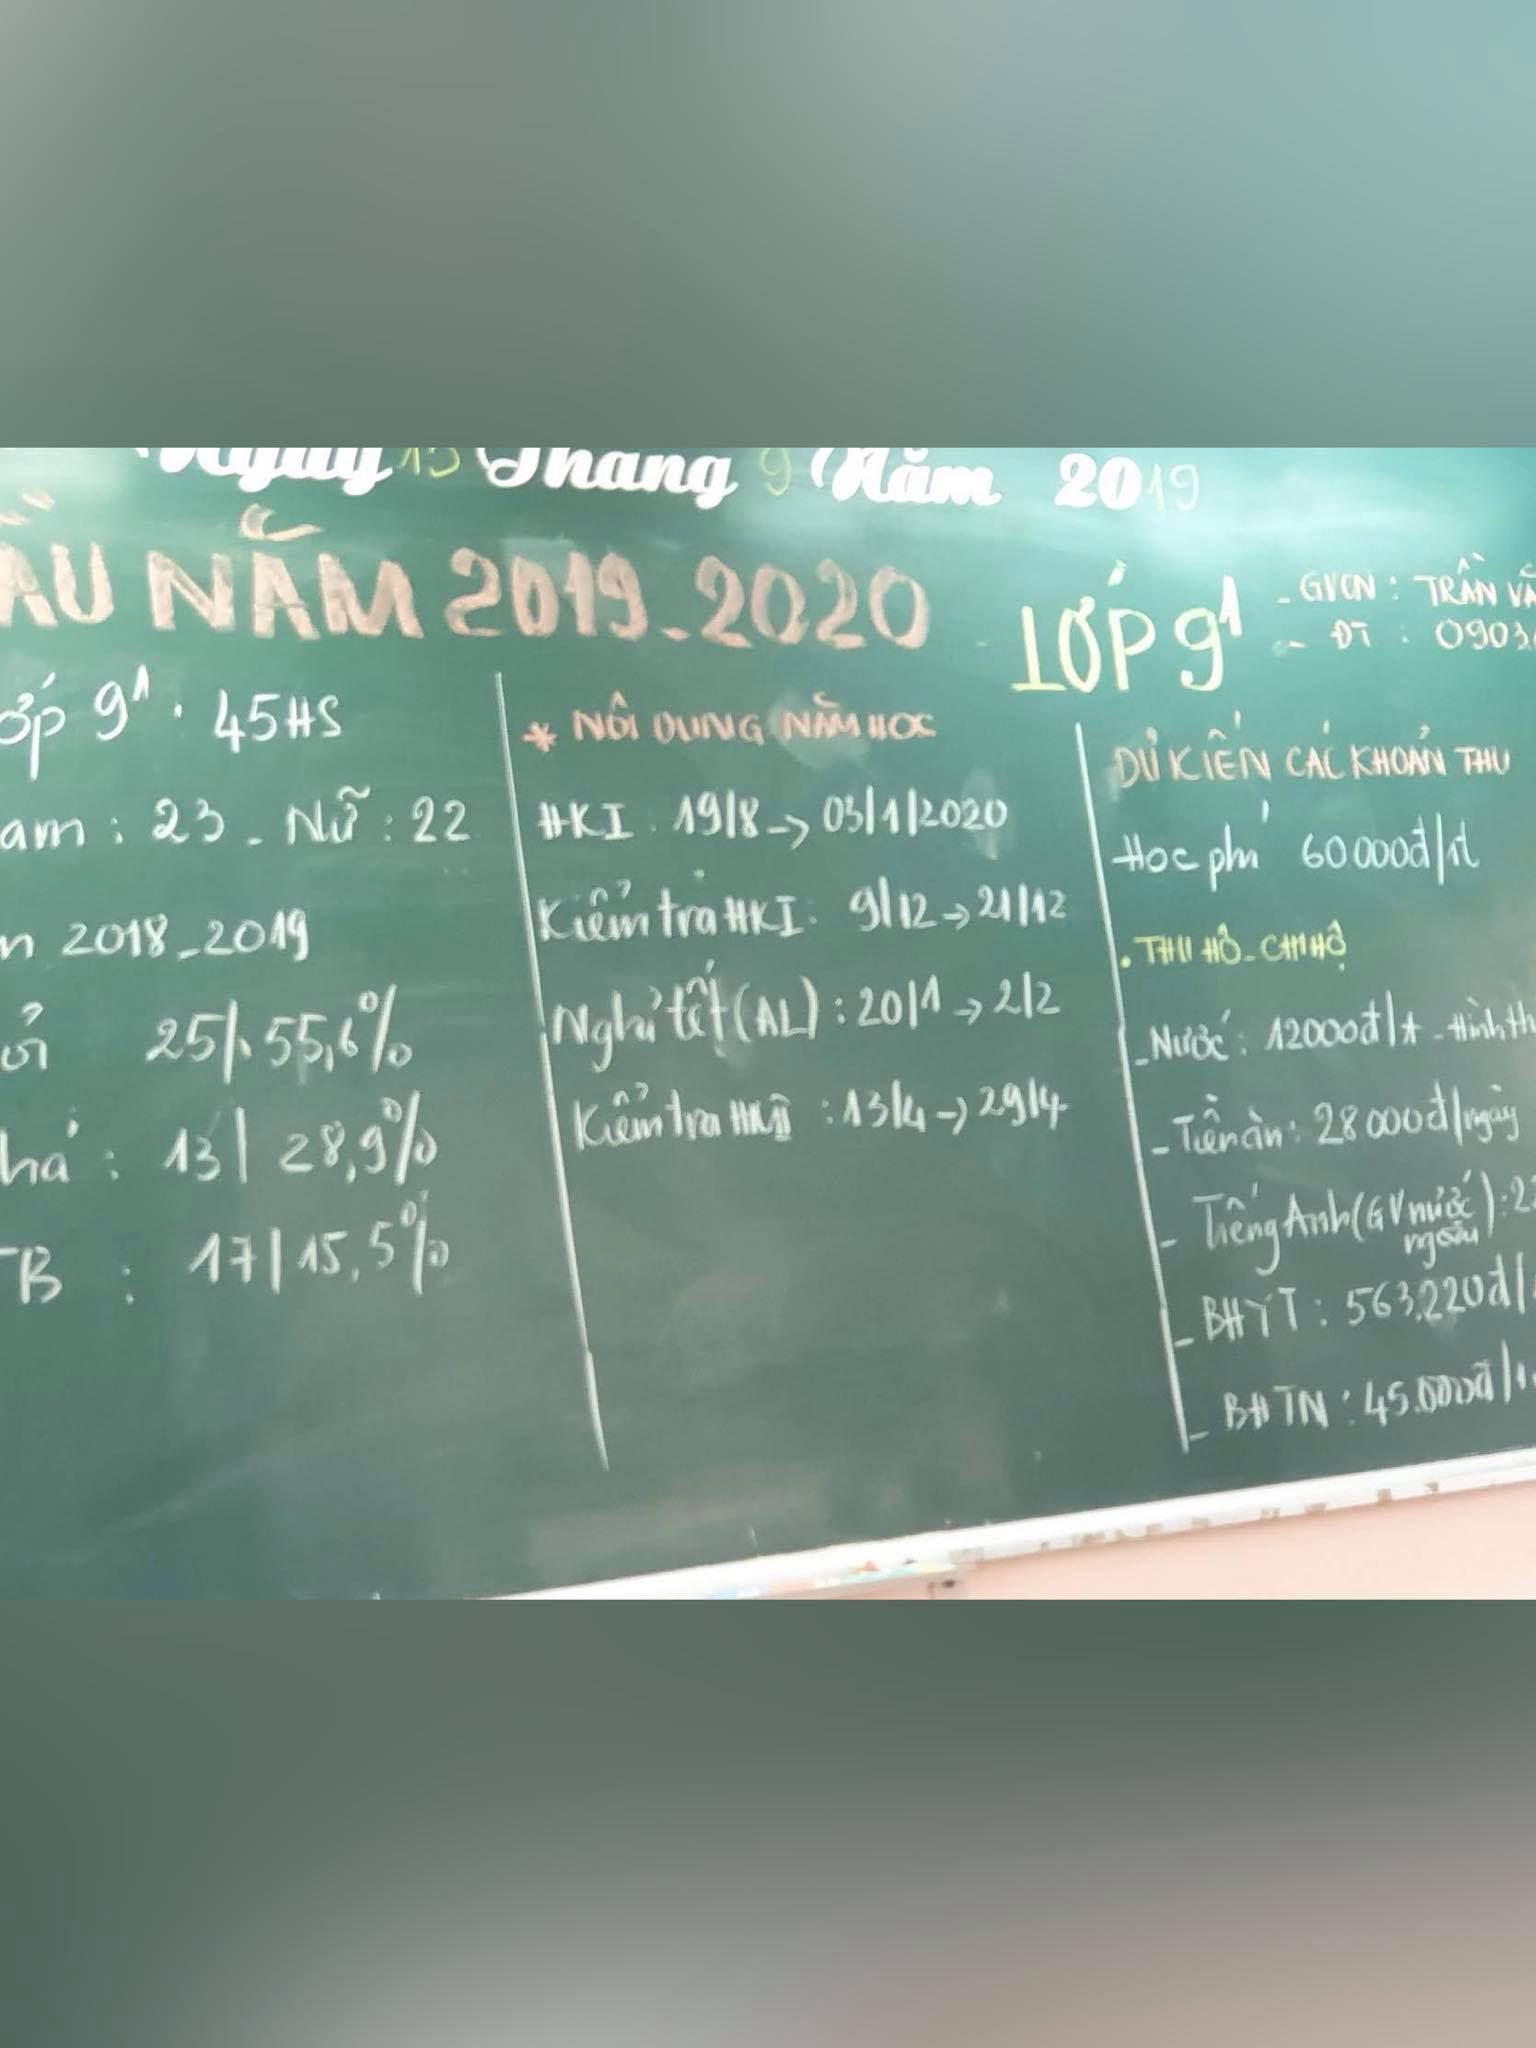 Ngày 15 Tháng 9 Năm 2019
NĂM 2019-2020
LỚP 9¹
- GVCN : TRẦN
- ĐT : 0903
9¹ : 45HS
: 23 - Nữ : 22
2018-2019
25 | 55,6%
: 13 | 28,9%
TB : 17 | 15,5%
* NỘI DUNG NĂM HỌC
HKI : 19/8 → 03/1/2020
Kiểm tra HKI : 9/12 → 21/12
Nghỉ tết (AL) : 20/1 → 2/2
Kiểm tra HKII : 13/4 → 29/4
DỰ KIẾN CÁC KHOẢN THU
Học phí 60000đ/1t
. THU HỘ - CHI HỘ
- Nước : 12000đ/t -
- Tiền ăn : 28.000đ/ngày
- Tiếng Anh (GV nước ngoài) :
- BHYT : 563.220đ/
- BHTN : 45.000đ/